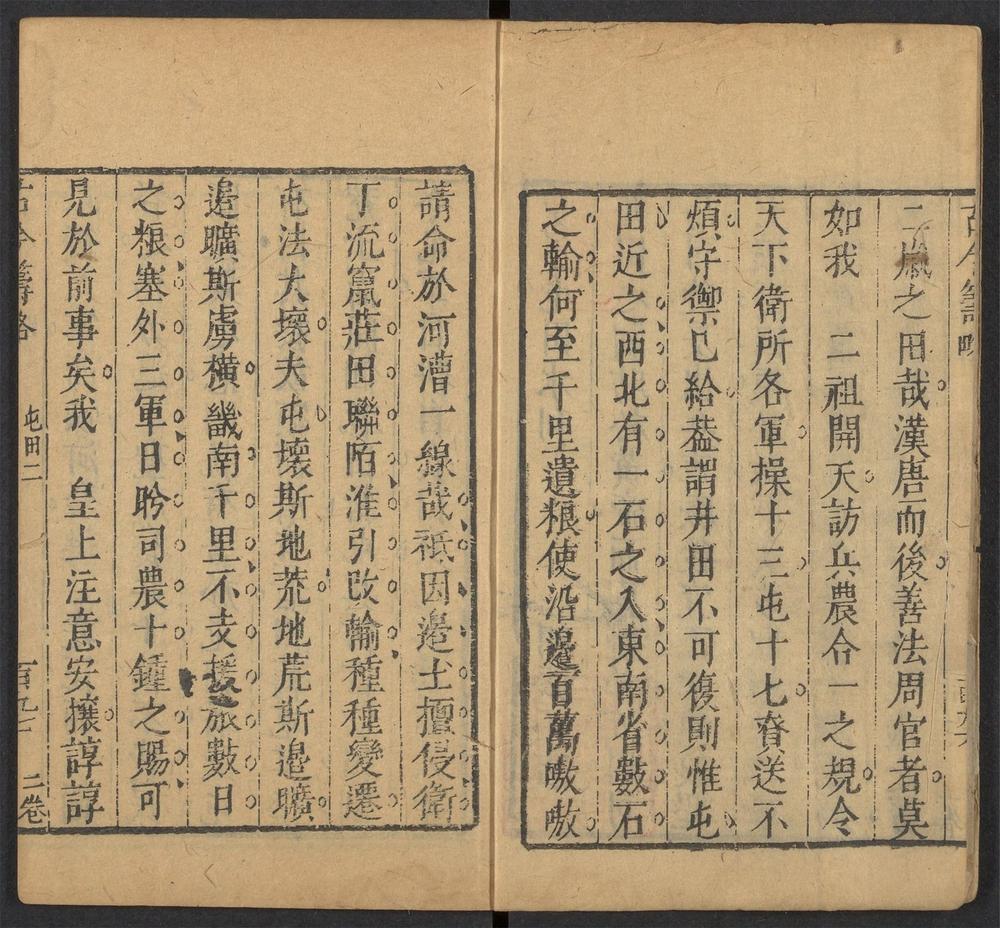 古今籌略
二嵐之田哉漢唐而後善法周官者莫
如我　二祖開天訪兵農合一之規令
天下衛所各軍操十三屯十七賫送不
煩守禦已給葢謂井田不可復則惟屯
田近之西北有一石之入東南省數石
之輸何至千里遺粮使沿邉百萬嗷嗷
請命於河漕一線哉祗因邉土擅侵衛
丁流竄莊田聯陌淮引改輸種種變遷
屯法大壞夫屯壊斯地荒地荒斯邉曠
邉曠斯虜横畿南千里不支援旅數日
之粮塞外三軍日盻司農十鍾之賜可
見於前事矣我　皇上注意安攘諄諄
古今籌略　屯田二　百九七　二卷